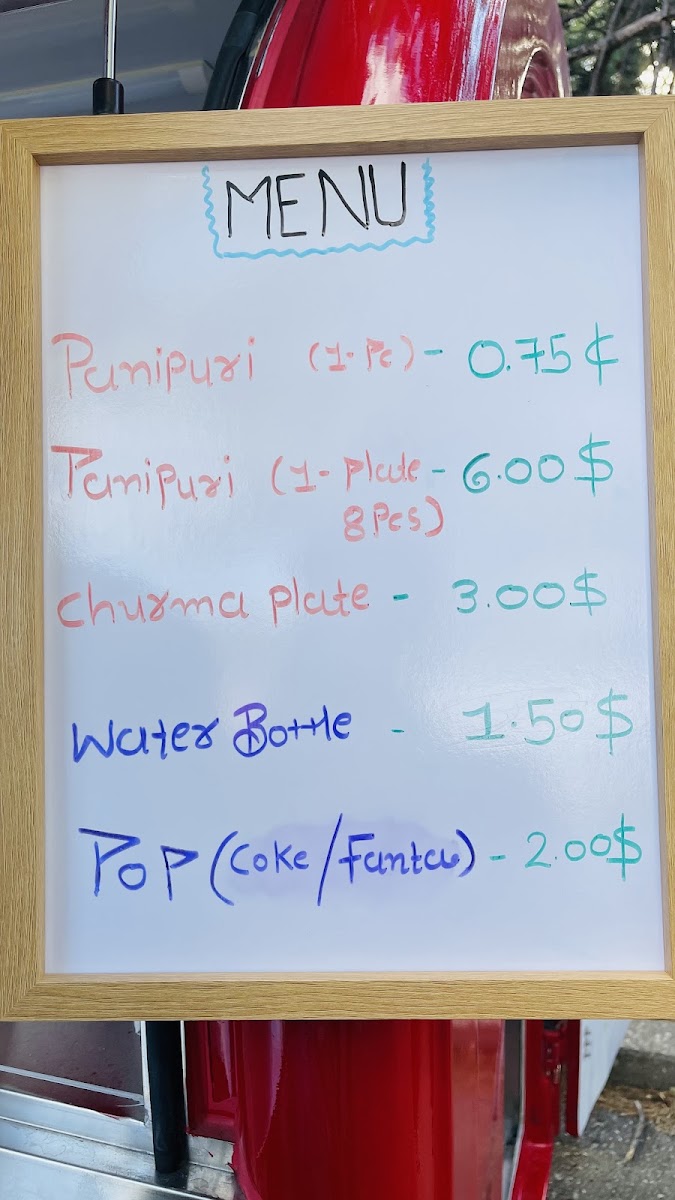 MENU
Panipuri (1-Pc) - 0.75 ¢
Panipuri (1-Plate - 6.00$
8Pcs)
Churma plate - 3.00$
Water Bottle - 1.50$
POP (Coke/Fanta) - 2.00$